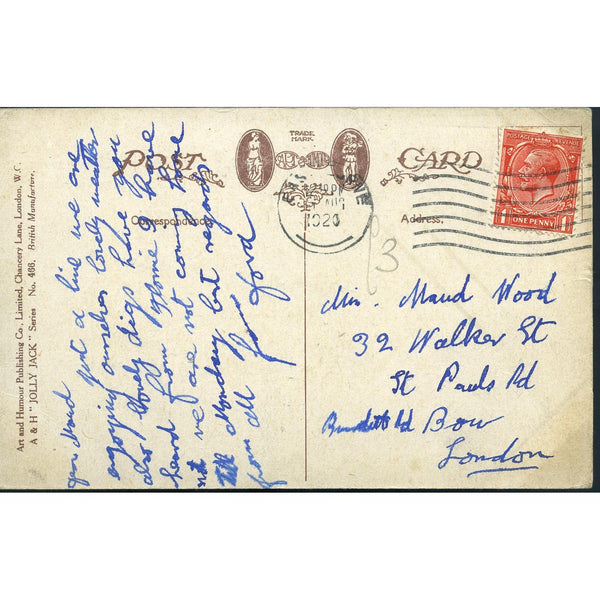 Art and Humour Publishing Co., Limited, Chancery Lane, London, W.C.
A & H "JOLLY JACK" Series No. 466. British Manufacture.
POST CARD
TRADE
MARK
Correspondence.
Address.
1920
POSTAGE
ONE PENNY
3
Maud just a line we are
enjoying ourselves lovely weather
also lovely digs have you
heard from home I have
not we are not coming home
till Monday but regards
from all from
Miss. Maud Wood
32 Walker St
St Pauls Rd
Burdett Rd Bow
London